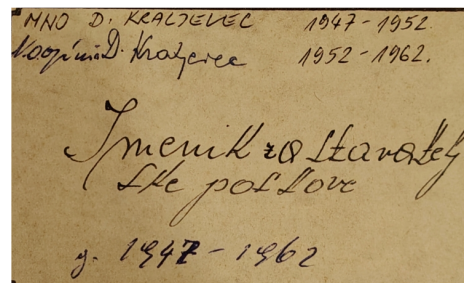 MNO D. KRALJEVEC 1947-1952.
D. Kraljevec 1952-1962.
Imenik za staratelj
ske poslove
g. 1947-1962